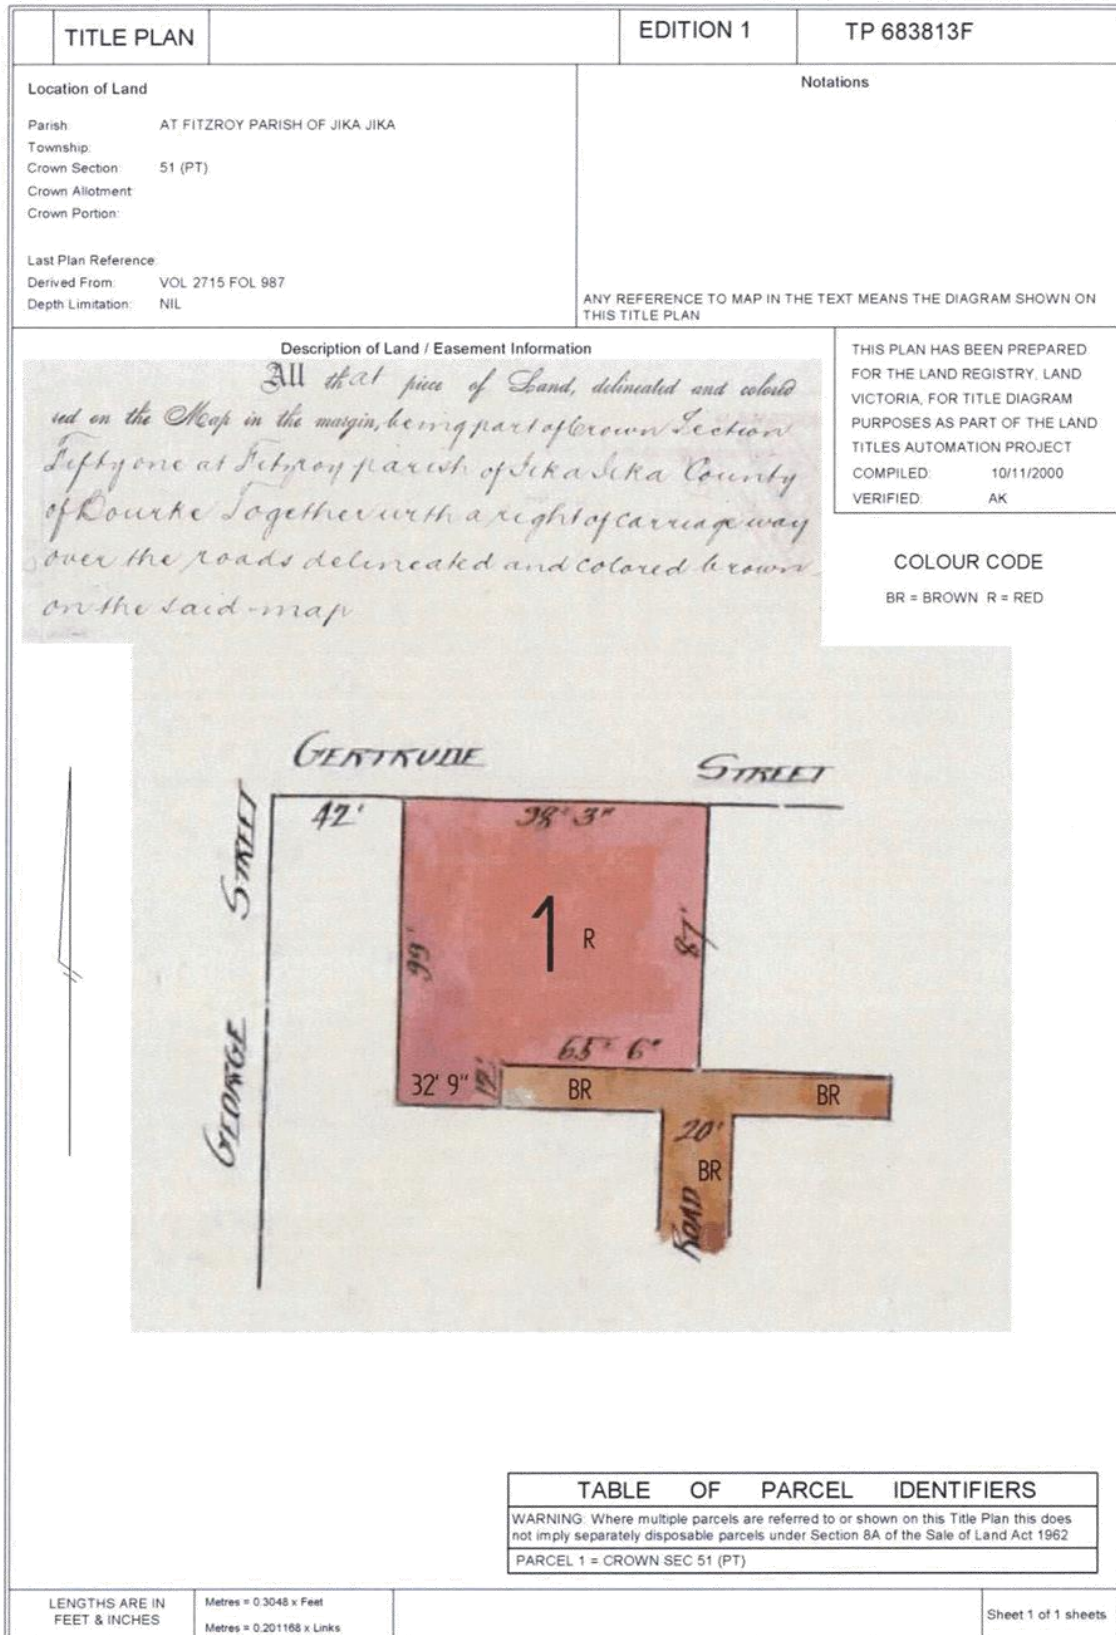 TITLE PLAN
EDITION 1
TP 683813F
Location of Land
Parish: AT FITZROY PARISH OF JIKA JIKA
Township:
Crown Section: 51 (PT)
Crown Allotment:
Crown Portion:
Last Plan Reference:
Derived From: VOL 2715 FOL 987
Depth Limitation: NIL
Notations
ANY REFERENCE TO MAP IN THE TEXT MEANS THE DIAGRAM SHOWN ON
THIS TITLE PLAN
Description of Land / Easement Information
All that piece of Land, delineated and colored
red on the Map in the margin, being part of Crown Section
Fifty one at Fitzroy parish of Jika Jika County
of Bourke Together with a right of carriage way
over the roads delineated and colored brown
on the said map
THIS PLAN HAS BEEN PREPARED
FOR THE LAND REGISTRY, LAND
VICTORIA, FOR TITLE DIAGRAM
PURPOSES AS PART OF THE LAND
TITLES AUTOMATION PROJECT
COMPILED: 10/11/2000
VERIFIED: AK
COLOUR CODE
BR = BROWN R = RED
GERTRUDE STREET
GEORGE STREET
42'
98' 3"
99'
1
R
87'
65' 6"
32' 9"
12'
BR
BR
20'
BR
ROAD
TABLE OF PARCEL IDENTIFIERS
WARNING: Where multiple parcels are referred to or shown on this Title Plan this does
not imply separately disposable parcels under Section 8A of the Sale of Land Act 1962
PARCEL 1 = CROWN SEC 51 (PT)
LENGTHS ARE IN
FEET & INCHES
Metres = 0.3048 x Feet
Metres = 0.201168 x Links
Sheet 1 of 1 sheets